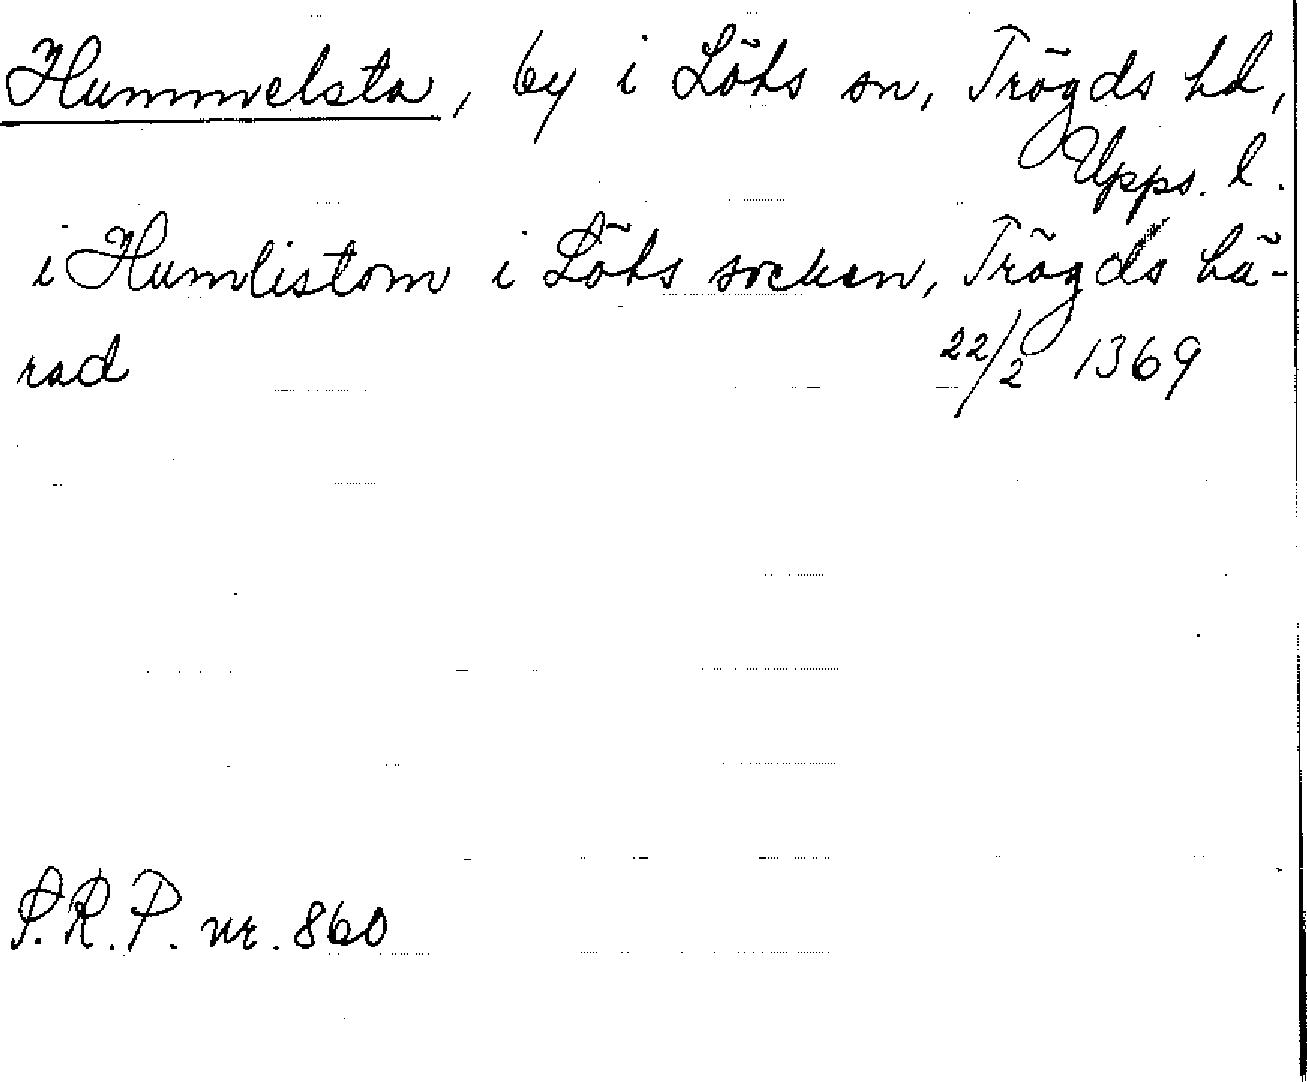 Hummelsta, by i Löts sn, Trögds hd,
Upps. l.
i Humlistom i Löts socken, Trögds hä-
rad 22/2 1369
S.R.P. nr. 860